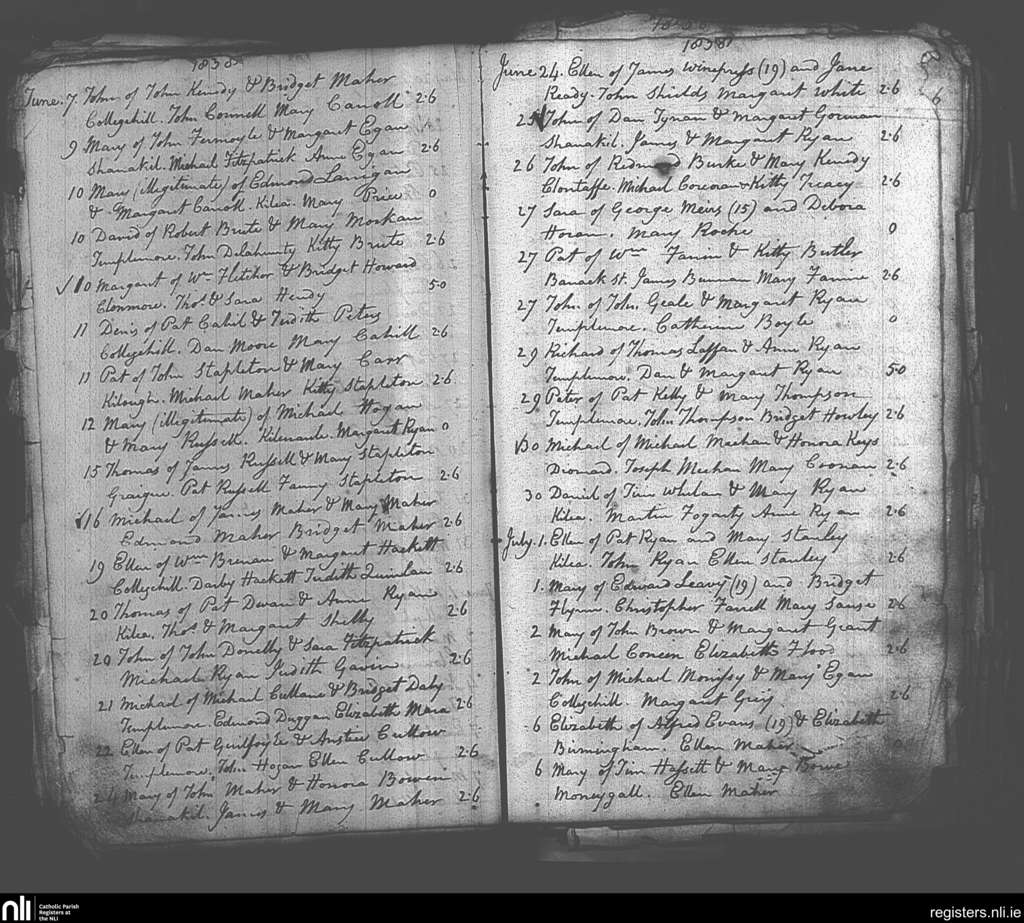 1838
June. 7. John of John Kenedy & Bridget Maher
Collegehill. John Connell Mary Carroll 2.6
9 Mary of John Fernoyle & Margaret Egan
Shanakil. Michael Fitzpatrick Anne Egan 2.6
10 Mary (illigitimate) of Edmond Lanigan
& Margaret Carroll. Kilea. Mary Price 0
10 David of Robert Brute & Mary
Templemore. John Delahunty Kitty Brute 2.6
10 Margaret of Wm Fletcher & Bridget Howard
Clonmore. Thos & Sara Hendy 5.0
11 Denis of Pat Cahil & Judith Peters
Collegehill. Dan Moore Mary Cahill 2.6
11 Pat of John Stapleton & Mary Carr
Kilough. Michael Maher Kitty Stapleton 2.6
12 Mary (illigitimate) of Michael Hogan
& Mary Russell. Kilenaule. Margaret Ryan 0
15 Thomas of James Russell & Mary Stapleton
Graigue. Pat Russell Fanny Stapleton 2.6
16 Michael of James Maher & Mary Maher
Edmond Maher Bridget Maher 2.6
19 Ellen of Wm Brenan & Margaret Hackett
Collegehill Darby Hackett Judith Quinlan 2.6
20 Thomas of Pat Dwan & Anne Ryan
Kilea. Thos & Margaret Shelly 2.6
20 John of John Donelly & Sara Fitzpatrick
Michael Ryan Judith Gavin 2.6
21 Michael of Michael Cullane & Bridget Daly
Templemore. Edmond Duggan Elizabeth Mara 2.6
22 Ellen of Pat Guilfoyle & Anstee Cullow
Templemore. John Hogan Ellen Cullow 2.6
24 Mary of John Maher & Honora Bowen
Shanakil. James & Mary Maher 2.6
1838
June 24. Ellen of James Winepress (19) and Jane
Ready. John Shields Margaret White 2.6
25 John of Dan Tynan & Margaret Gorman
Shanakil. James & Margaret Ryan 2.6
26 John of Redmond Burke & Mary Kenedy
Clontaffe. Michael Corcoran & Kitty Treacy 2.6
27 Sara of George Meirs (15) and Debora
Horan. Mary Roche 0
27 Pat of Wm Fanin & Kitty Butler
Barrack St. James Brennan Mary Fannin 2.6
27 John of John Geale & Margaret Ryan
Templemore. Catherine Boyle 0
29 Richard of Thomas Laffan & Anne Ryan
Templemore. Dan & Margaret Ryan 5.0
29 Peter of Pat Kelly & Mary Thompson
Templemore. John Thompson Bridget Howley 2.6
30 Michael of Michael Meehan & Honora Keys
Dromard. Joseph Meehan Mary Coonan 2.6
30 Daniel of Tim Whelan & Mary Ryan
Kilea. Martin Fogarty Anne Ryan 2.6
July. 1. Ellen of Pat Ryan and Mary Stanley
Kilea. John Ryan Ellen Stanley 2.6
1. Mary of Edward Leavy (19) and Bridget
Flynn. Christopher Farrell Mary Sause 2.6
2 Mary of John Brown & Margaret Grant
Michael Coneen Elizabeth Flood 2.6
2 John of Michael Morrissy & Mary Egan
Collegehill. Margaret Grey 2.6
6 Elizabeth of Alfred Evans (19) & Elizabeth
Birmingham. Ellen Maher
6 Mary of Tim Hassett & Mary Bowe
Moneygall. Ellen Maher
nli
Catholic Parish
Registers at
the NLI
registers.nli.ie